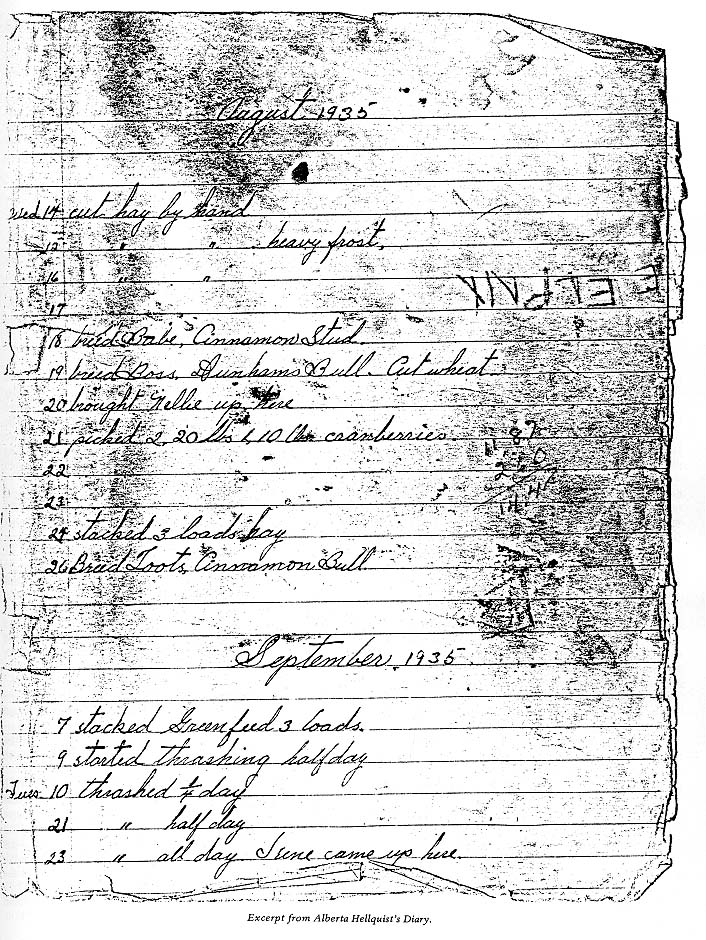 August 1935
Wed 14 cut hay by hand
15 " " heavy frost.
16 " "
17
18 breed Babe, Cinnamon Stud.
19 breed Boss, Dunhams Bull. Cut wheat
20 brought Nellie up here
21 picked 2 20 lbs & 10 lbs cranberries.
22
23
24 stacked 3 loads hay
26 Breed Toots, Cinnamon Bull
September 1935
7 stacked Greenfeed 3 loads.
9 started thrashing half day
Tues 10 thrashed ¼ day
21 " half day
23 " all day June came up here.
Excerpt from Alberta Hellquist's Diary.